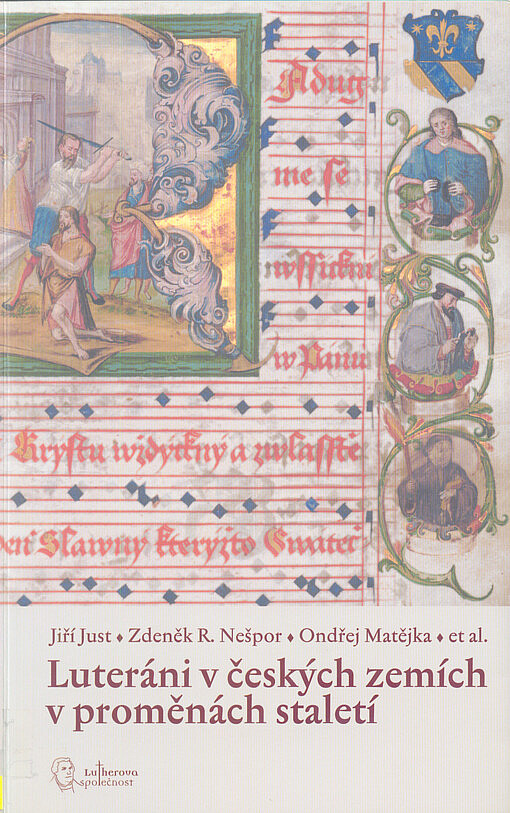 Radug
me se
w Pánu
Krystu wždyckny a zwlasstě
den Slawny kteryžto Swateč
Jiří Just ♦ Zdeněk R. Nešpor ♦ Ondřej Matějka ♦ et al.
Luteráni v českých zemích
v proměnách staletí
Lutherova
společnost